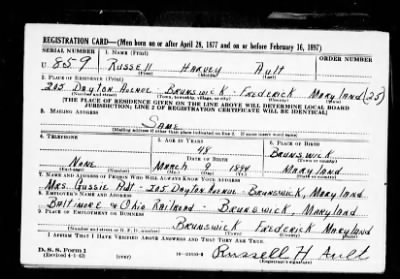 REGISTRATION CARD—(Men born on or after April 28, 1877 and on or before February 16, 1897)
SERIAL NUMBER 1. NAME (Print)
U 859 RUSSELL HARVEY AULT
(First) (Middle) (Last)
2. PLACE OF RESIDENCE (Print)
205 DAYTON AVENUE - BRUNSWICK - FREDERICK MARYLAND (25)
(Number and street) (Town, township, village, or city) (County) (State)
[THE PLACE OF RESIDENCE GIVEN ON THE LINE ABOVE WILL DETERMINE LOCAL BOARD
JURISDICTION; LINE 2 OF REGISTRATION CERTIFICATE WILL BE IDENTICAL]
3. MAILING ADDRESS
SAME
[Mailing address if other than place indicated on line 2. If same insert word same]
4. TELEPHONE 5. AGE IN YEARS 6. PLACE OF BIRTH
48 BRUNSWICK
DATE OF BIRTH (Town or county)
NONE MARCH 9 1894 MARYLAND
(Exchange) (Number) (Mo.) (Day) (Yr.) (State or country)
7. NAME AND ADDRESS OF PERSON WHO WILL ALWAYS KNOW YOUR ADDRESS
MRS. GUSSIE AULT - 205 DAYTON AVENUE - BRUNSWICK, MARYLAND
8. EMPLOYER'S NAME AND ADDRESS
BALTIMORE & OHIO RAILROAD - BRUNSWICK, MARYLAND
9. PLACE OF EMPLOYMENT OR BUSINESS
BRUNSWICK FREDERICK MARYLAND
(Number and street or R. F. D. number) (Town) (County) (State)
I AFFIRM THAT I HAVE VERIFIED ABOVE ANSWERS AND THAT THEY ARE TRUE.
D. S. S. Form 1
(Revised 4-1-42) (over) Russell H Ault